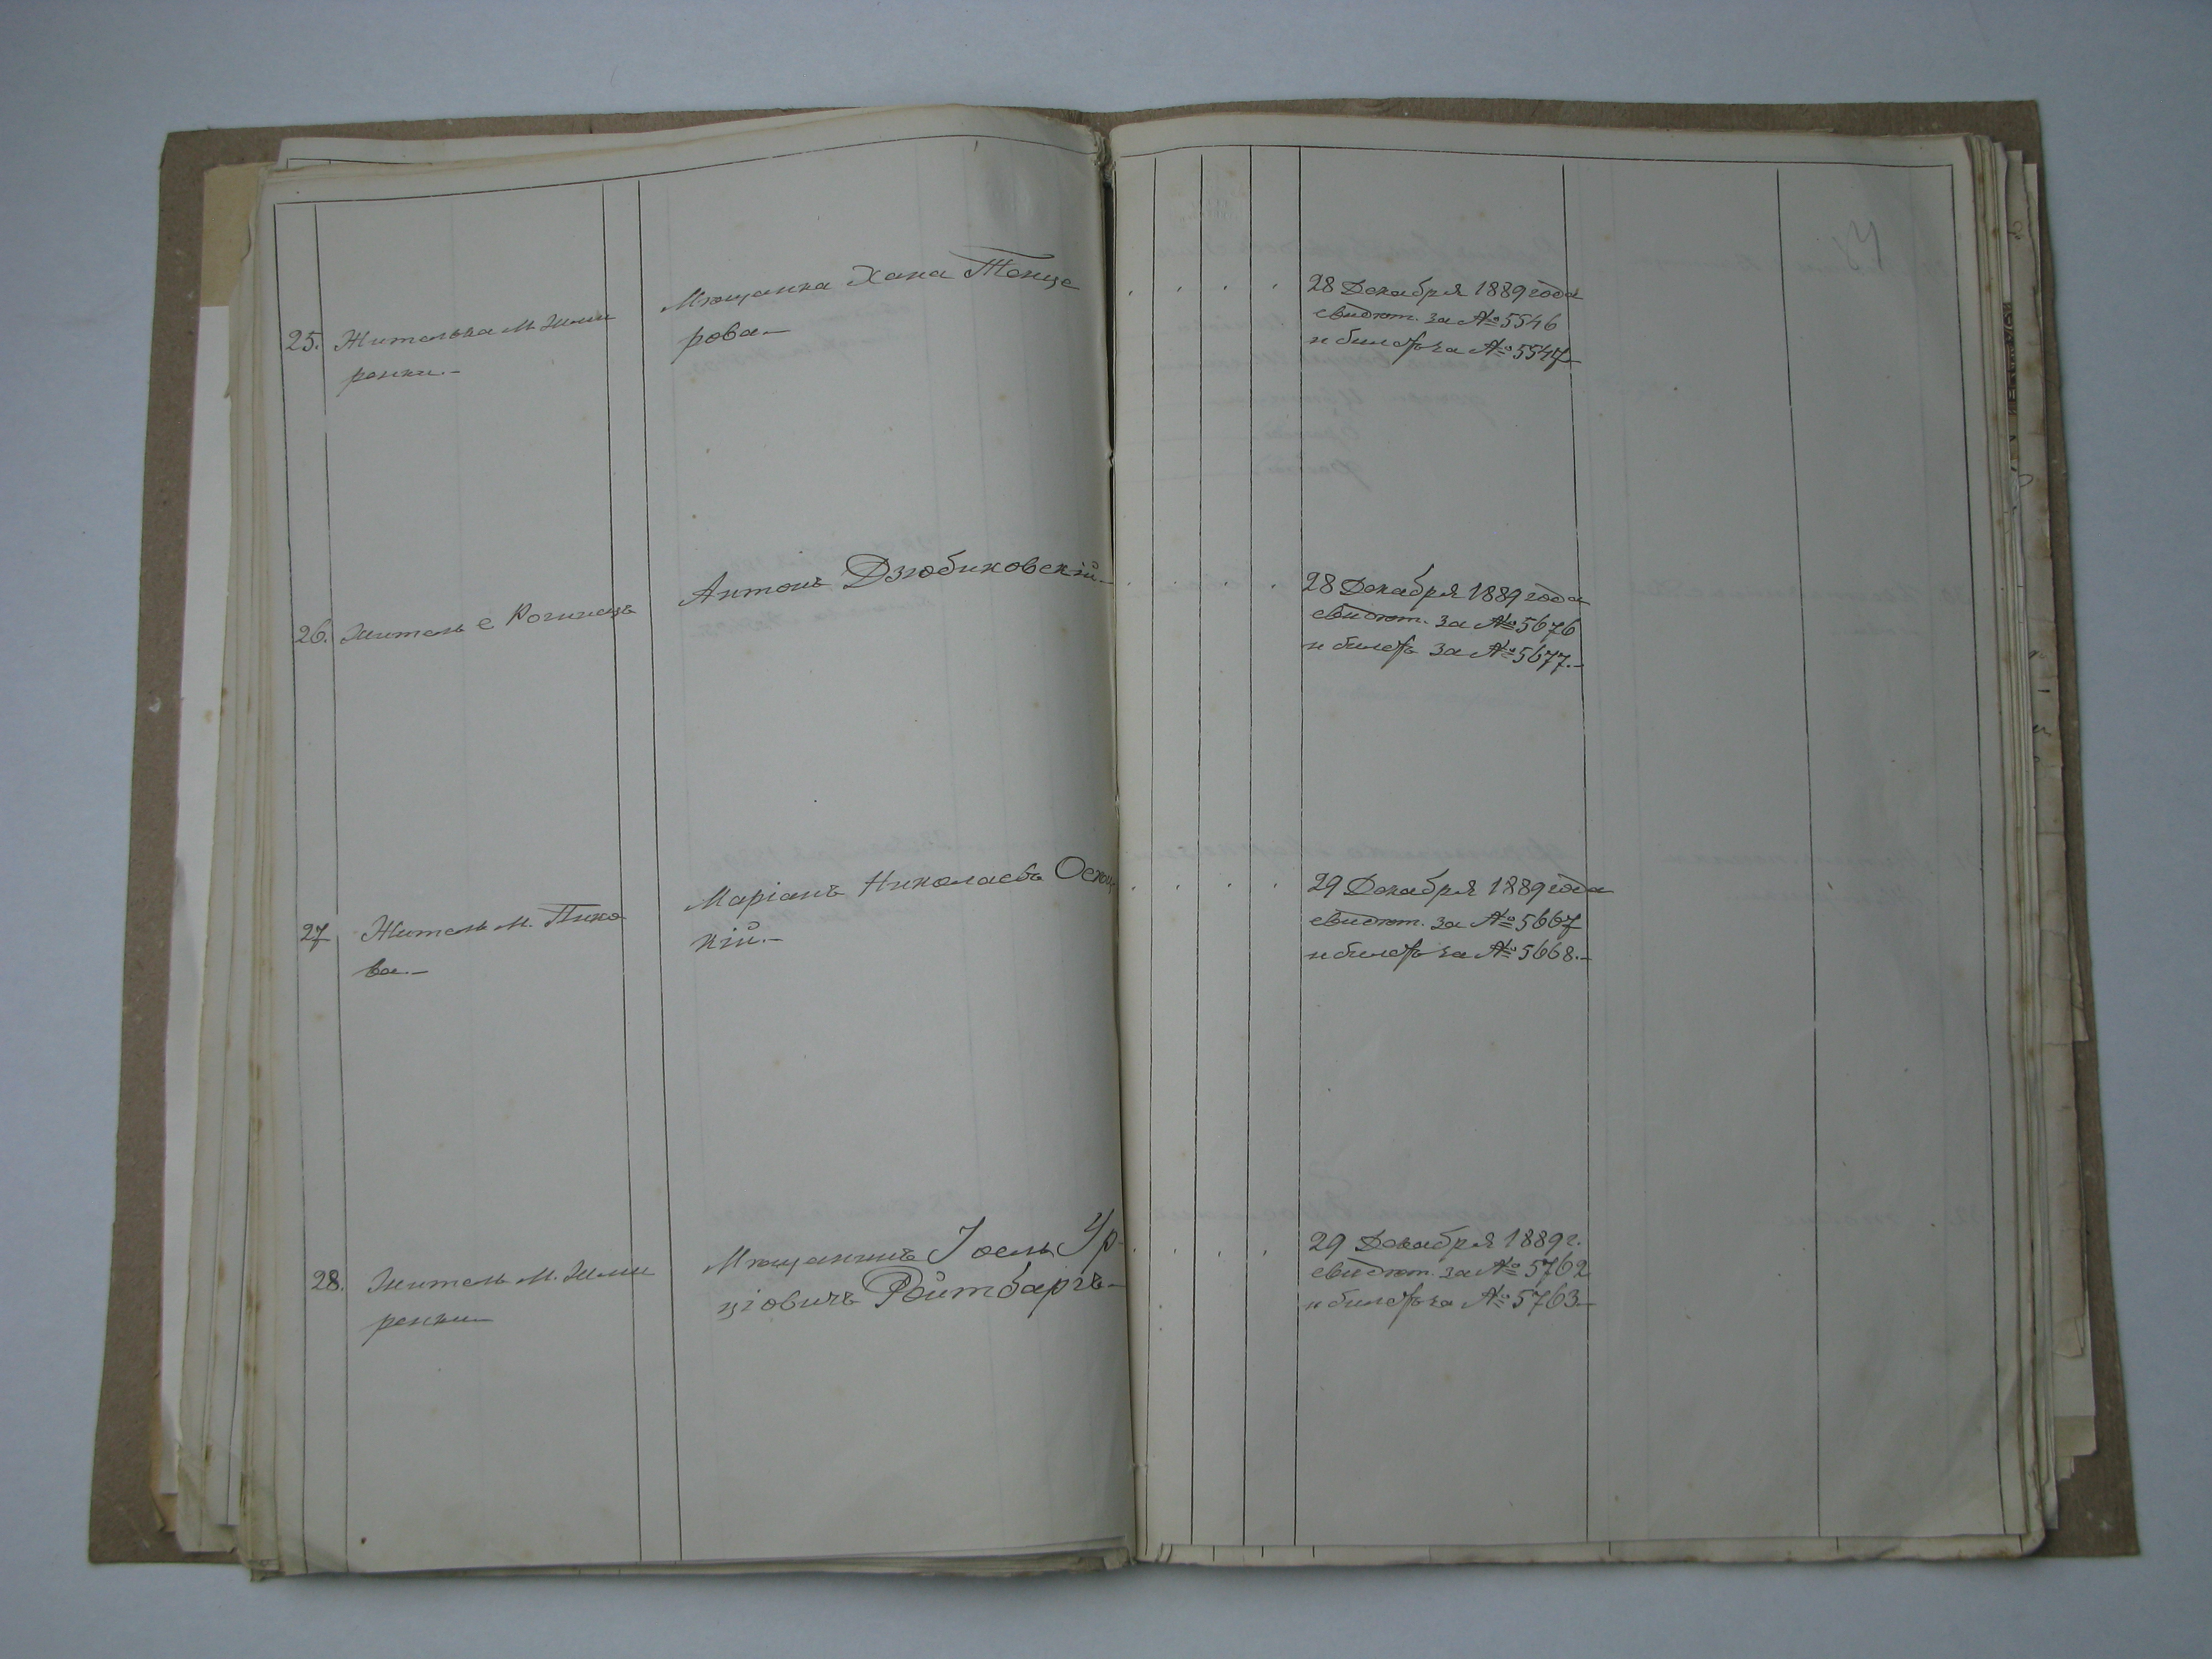 25. Жителька м. Жме
ренки.-
Мѣщанка Хана Тенце
рова.-
28 Декабря 1889 года
свидѣт. за № 5546
и билетъ за № 5547
26. Житель с
Антонъ Дзюбиковскій.-
28 Декабря 1889 года
свидѣт. за № 5676
и билетъ за № 5677.-
27 Житель м. Пико
ва.-
Маріанъ Николаевъ
кій.-
29 Декабря 1889 года
свидѣт. за № 5667
и билетъ за № 5668.-
28. Житель м. Жме
ренки
Мѣщанинъ Іосль Ур-
ціовичъ Ройтбаргъ-
29 Декабря 1889 г.
свидѣт. за № 5762
и билетъ за № 5763.-